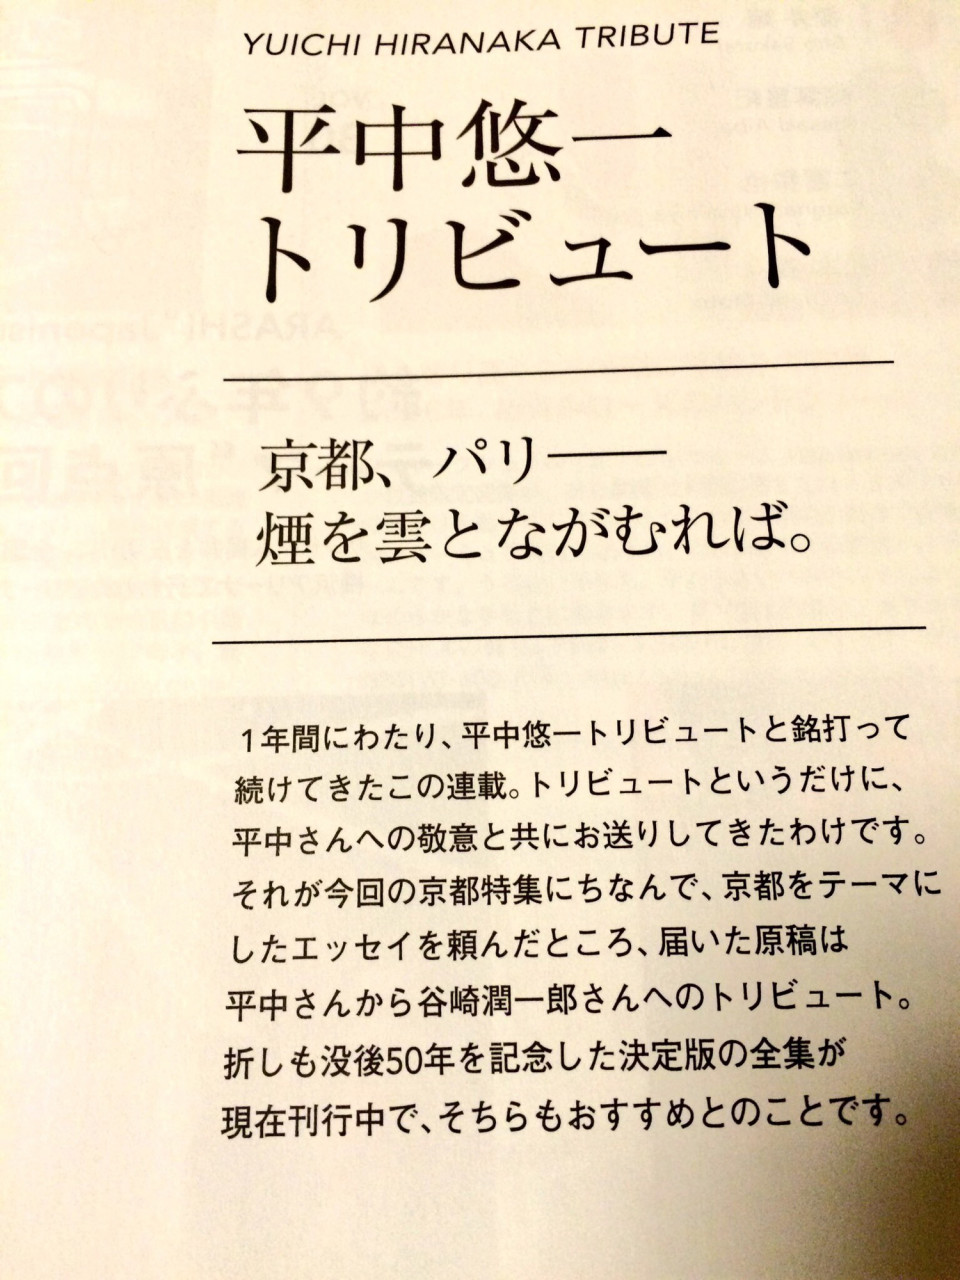 YUICHI HIRANAKA TRIBUTE
平中悠一
トリビュート
京都、パリ――
煙を雲とながむれば。
1年間にわたり、平中悠一トリビュートと銘打って
続けてきたこの連載。トリビュートというだけに、
平中さんへの敬意と共にお送りしてきたわけです。
それが今回の京都特集にちなんで、京都をテーマに
したエッセイを頼んだところ、届いた原稿は
平中さんから谷崎潤一郎さんへのトリビュート。
折しも没後50年を記念した決定版の全集が
現在刊行中で、そちらもおすすめとのことです。